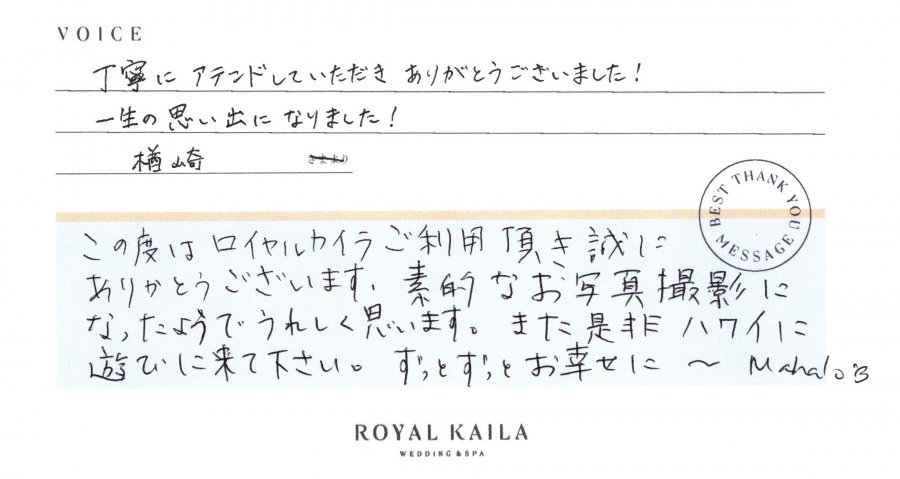 VOICE
丁寧に アテンドしていただき ありがとうございました!
一生の思い出に なりました!
楢崎 さまより
BEST THANK YOU MESSAGE
この度は ロイヤルカイラ ご利用 頂き 誠に
ありがとうございます。素的なお写真撮影に
なったようでうれしく思います。また是非 ハワイに
遊びに来て下さい。ずっとずっとお幸せに 〜 Mahalo
ROYAL KAILA
WEDDING & SPA